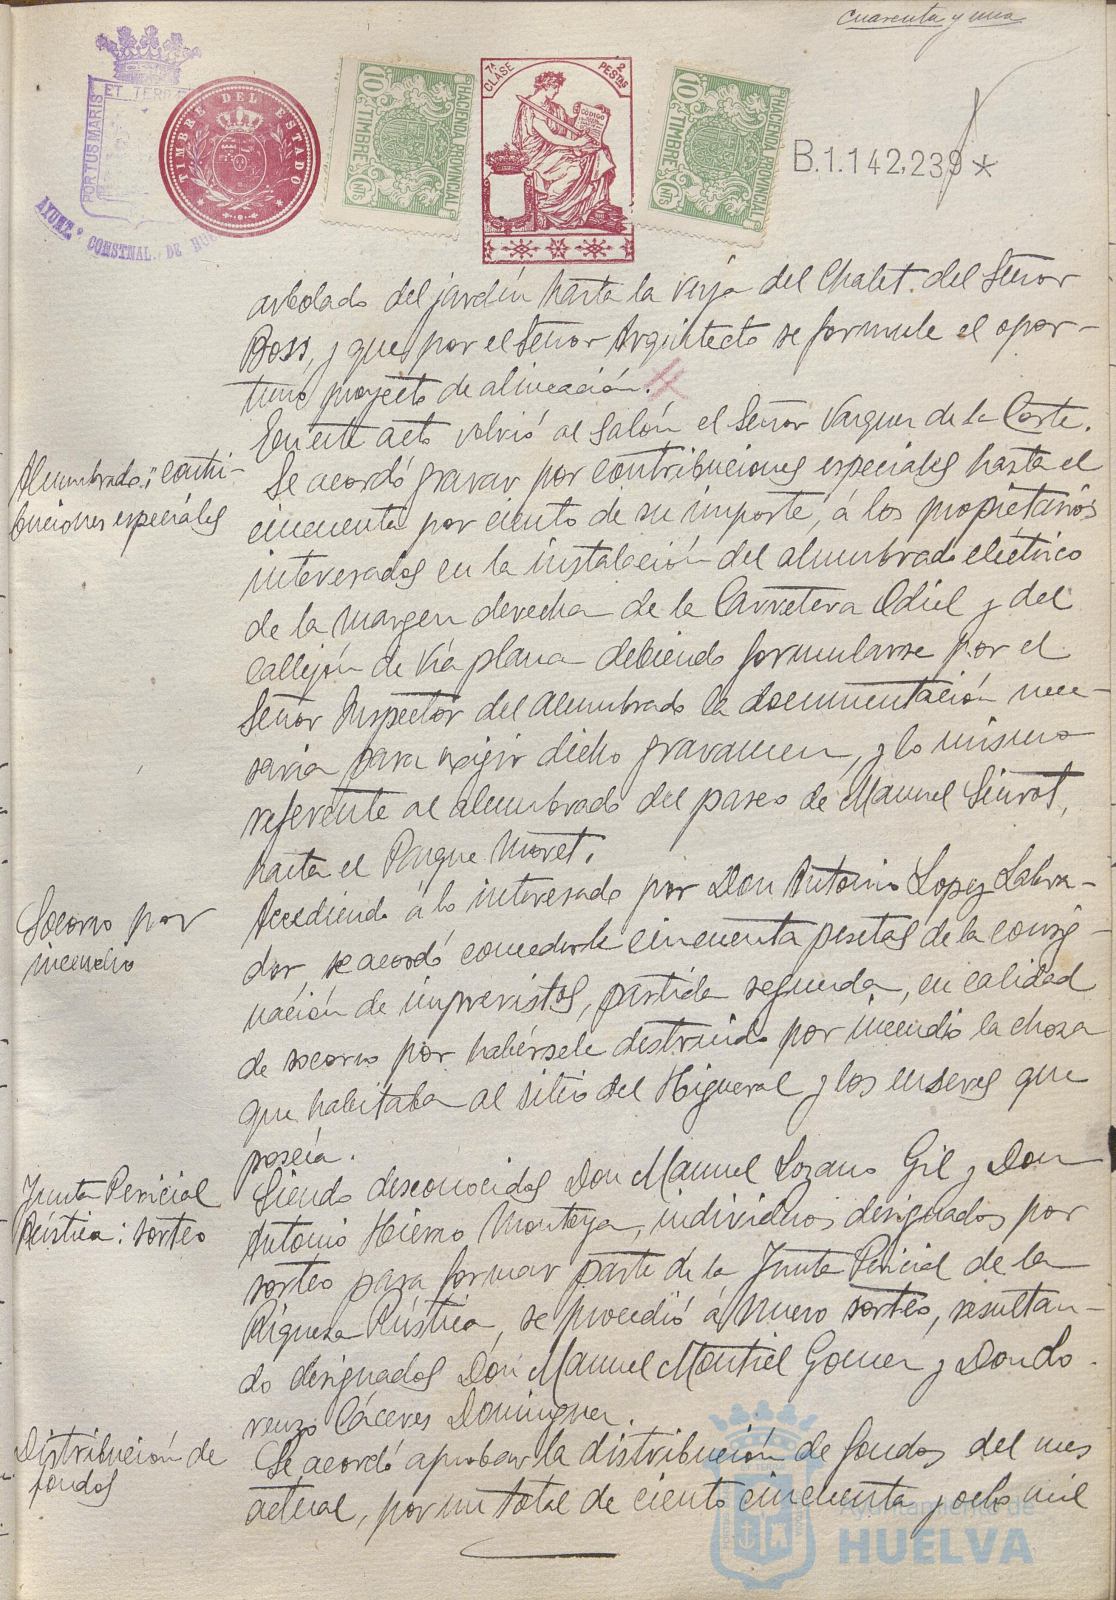 cuarenta y una
PORTUS MARIS
ET TERR
AYUNT.º CONSTNAL. DE HUE
TIMBRE DEL ESTADO
HACIENDA PROVINCIAL
10 TIMBRE CNTS
7ª CLASE
2 PESTAS
CODIGO
HACIENDA PROVINCIAL
10 TIMBRE CNTS
B.1.142,239*
arbolado del jardín hasta la verja del Chalet del Señor
Boss, y que por el Señor Arquitecto se formule el opor-
tuno proyecto de alineación.
En este acto volvió al Salón el Señor Vazquez de la Corte.
Alumbrado: contri-
buciones especiales
Se acordó gravar por contribuciones especiales hasta el
cincuenta por ciento de su importe, á los propietarios
interesados en la instalación del alumbrado eléctrico
de la margen derecha de la Carretera Odiel y del
callejón de Vía plana debiendo formularse por el
Señor Inspector del Alumbrado la documentación nece-
saria para exigir dicho gravamen, y lo mismo
referente al alumbrado del paseo de Manuel Siurot,
hasta el Parque Moret.
Socorro por
incendio
Accediendo á lo interesado por Don Antonio Lopez Labra-
dor, se acordó concederle cincuenta pesetas de la consig-
nación de imprevistos, partida segunda, en calidad
de socorro por habérsele destruido por incendio la choza
que habitaba al sitio del Higueral y los enseres que
poseía.
Junta Pericial
Rústica: sorteo
Siendo desconocidos Don Manuel Lozano Gil y Don
Antonio Hierro Montoya, individuos designados por
sorteo para formar parte de la Junta Pericial de la
Riqueza Rústica, se procedió á nuevo sorteo, resultan-
do designados Don Manuel Montiel Gomez y Don Lo-
renzo Cáceres Dominguez.
Distribución de
fondos
Se acordó aprobar la distribución de fondos del mes
actual, por un total de ciento cincuenta y ocho mil
Ayuntamiento de
HUELVA